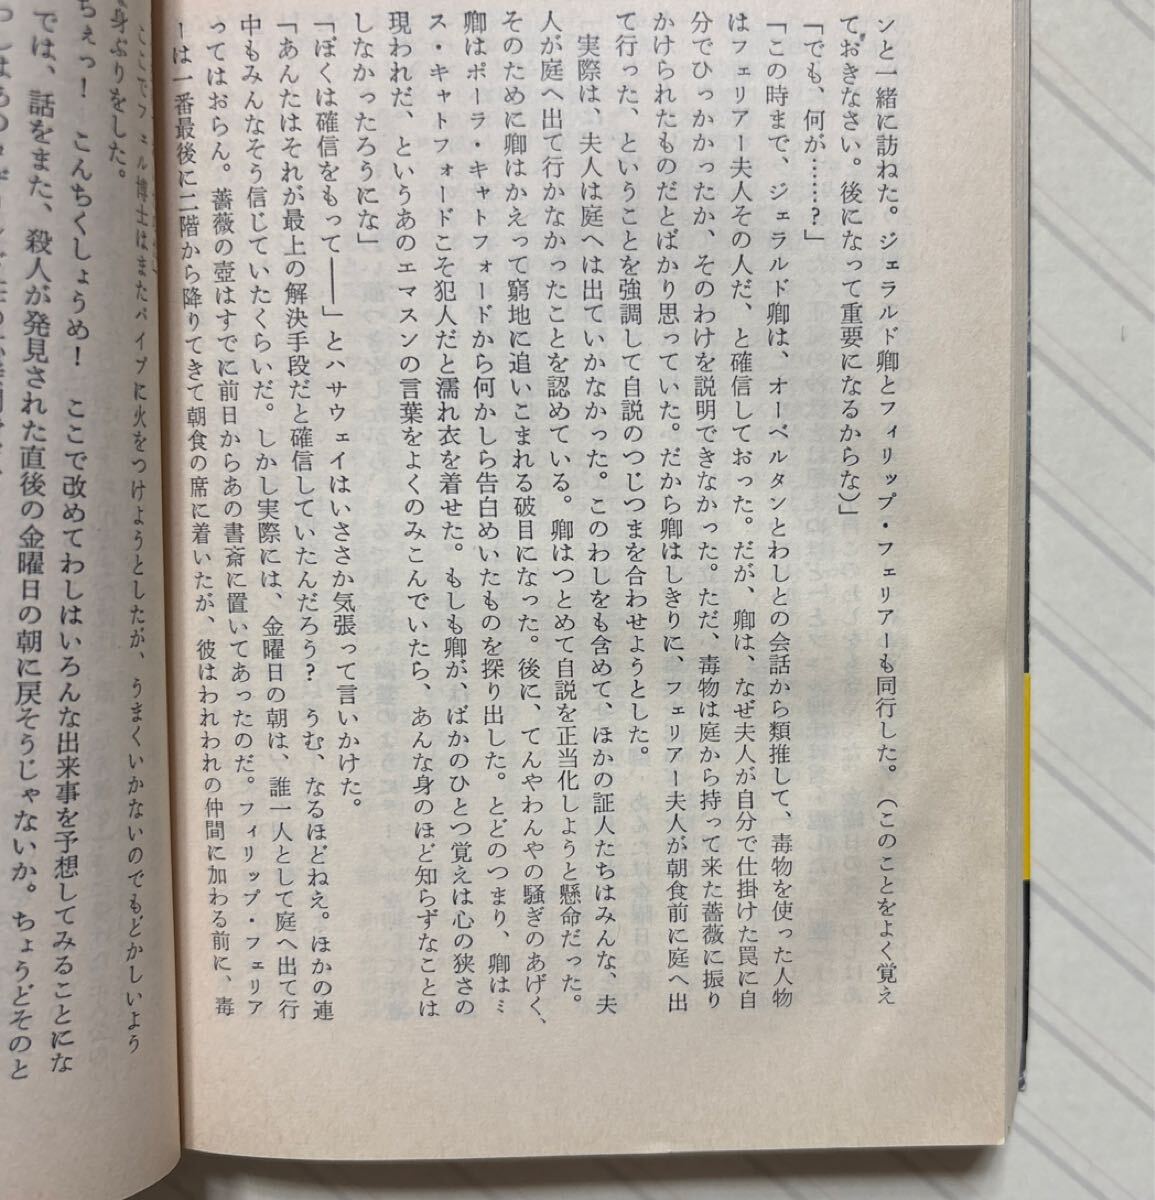 ンと一緒に訪ねた。ジェラルド卿とフィリップ・フェリアーも同行した。（このことをよく覚え
ておきなさい。後になって重要になるからな）」
「でも、何が……？」
「この時まで、ジェラルド卿は、オーベルタンとわしとの会話から類推して、毒物を使った人物
はフェリアー夫人その人だ、と確信しておった。だが、卿は、なぜ夫人が自分で仕掛けた罠に自
分でひっかかったか、そのわけを説明できなかった。ただ、毒物は庭から持って来た薔薇に振り
かけられたものだとばかり思っていた。だから卿はしきりに、フェリアー夫人が朝食前に庭へ出
て行った、ということを強調して自説のつじつまを合わせようとした。
「実際は、夫人は庭へは出ていかなかった。このわしをも含めて、ほかの証人たちはみんな、夫
人が庭へ出て行かなかったことを認めている。卿はつとめて自説を正当化しようと懸命だった。
そのために卿はかえって窮地に追いこまれる破目になった。後に、てんやわんやの騒ぎのあげく、
卿はポーラ・キャトフォードから何かしら告白めいたものを探り出した。とどのつまり、卿は…
ス・キャトフォードこそ犯人だと濡れ衣を着せた。もしも卿が、ばかのひとつ覚えは心の狭さの
現われだ、というあのエマスンの言葉をよくのみこんでいたら、あんな身のほど知らずなことは
しなかったろうにな」
「ぼくは確信をもって――」とハサウェイはいささか気張って言いかけた。
「あんたはそれが最上の解決手段だと確信していたんだろう？　うむ、なるほどねえ。ほかの連
中もみんなそう信じていたくらいだ。しかし実際には、金曜日の朝は、誰一人として庭へ出て行
ってはおらん。薔薇の壺はすでに前日からあの書斎に置いてあったのだ。フィリップ・フェリア
ーは一番最後に二階から降りてきて朝食の席に着いたが、彼はわれわれの仲間に加わる前に、毒
ここでフェル博士はまたパイプに火をつけようとしたが、うまくいかないのでもどかしいよう
身ぶりをした。
ちぇっ！　こんちくしょうめ！　ここで改めてわしはいろんな出来事を予想してみることにな
では、話をまた、殺人が発見された直後の金曜日の朝に戻そうじゃないか。ちょうどそのと